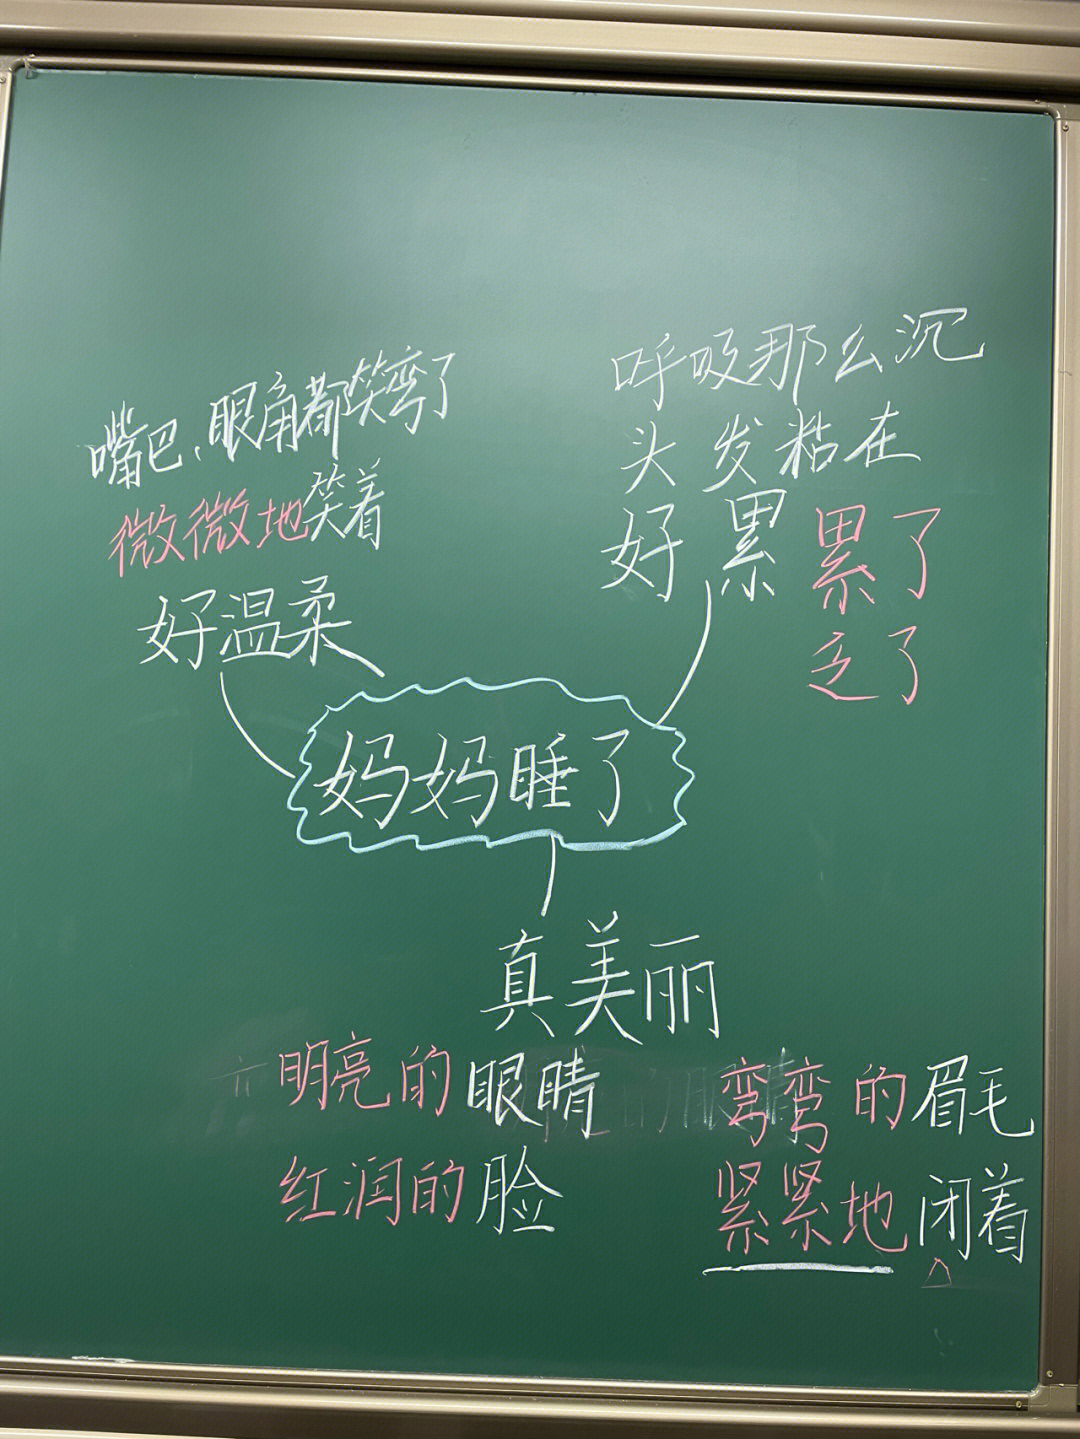 嘴巴、眼角都笑弯了
微微地笑着
好温柔
呼吸那么沉
头发粘在
好累 累了
乏了
妈妈睡了
真美丽
明亮的眼睛
红润的脸
弯弯的眉毛
紧紧地闭着